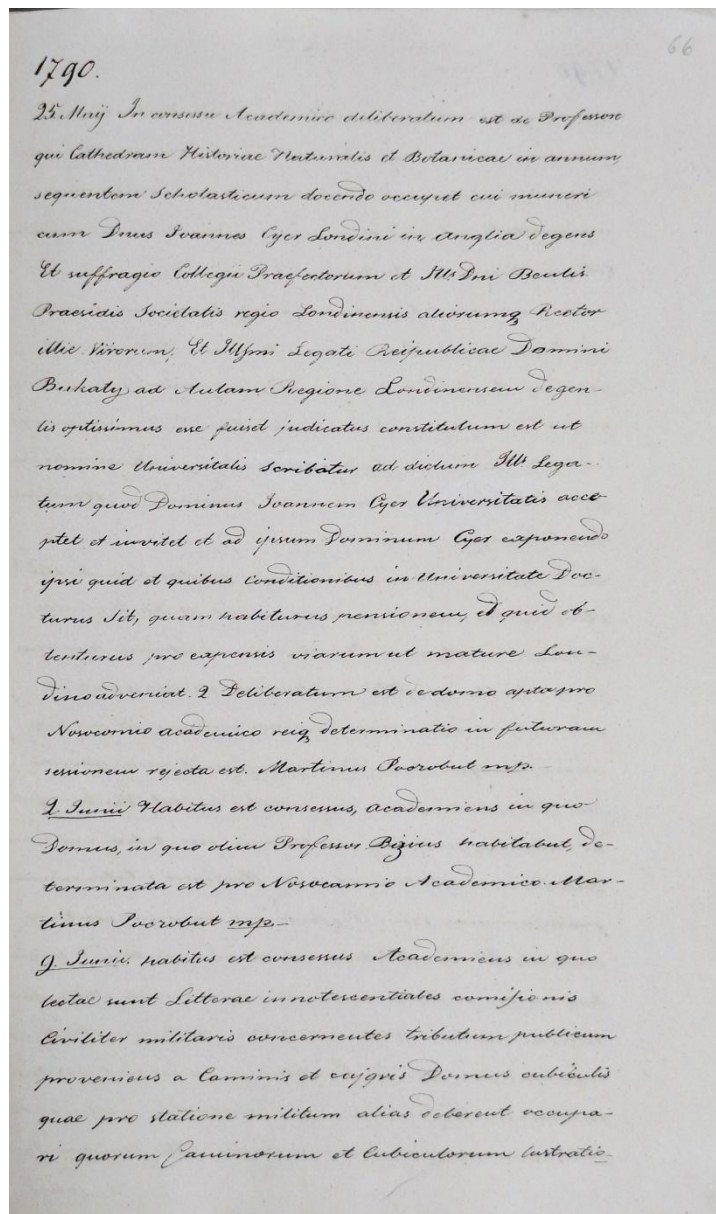 66
1790.
25. Maÿ In consessu Academico deliberatum est de Professore
qui Cathedram Historiae Naturalis et Botanicae in annum
sequentem Scholasticum docendo occupet cui muneri
cum Dnus Ioannes Cyer Londini in Anglia degens
Et suffragio Collegii Praefectorum et Ills Dni Beulis
Praesidis Societatis regio Londinensis aliorumq Rector
illic Virorum. Et Illsmi Legati Reipublicae Domini
Bukaty ad Aulam Regione Londinensem degen-
tis optissimus esse fuiset judicatus constitutum est ut
nomine Universitatis scribatur ad dictum Ills Lega-
tum quod Dominus Ioannem Cyer Universitatis acce-
ptet et invitet et ad ipsum Dominum Cyer exponendo
ipsi quid et quibus Conditionibus in Universitate Doc-
turus Sit, quam habiturus pensionem, et quid ob-
tenturus pro expensis viarum ut mature Lon-
dino adveniat. 2 Deliberatum est de domo apta pro
Nosocomio academico reiq determinatio in futuram
sessionem rejecta est. Martinus Poczobut mp.
2. Junii Habitus est consessus, academicus in quo
Domus, in quo olim Professor Bizius habitabat, de-
terminata est pro Nosocamio Academico. Mar-
tinus Poczobut mp.
9. Junii. habitus est consessus Academicus in quo
lectae sunt Litterae innotescentiales comissionis
Civiliter militaris concernentes tributum publicum
proveniens a Caminis et cujqvis Domus cubiculis
quae pro statione militum alias deberent occupa-
ri quorum Caminorum et Cubiculorum lustratio-